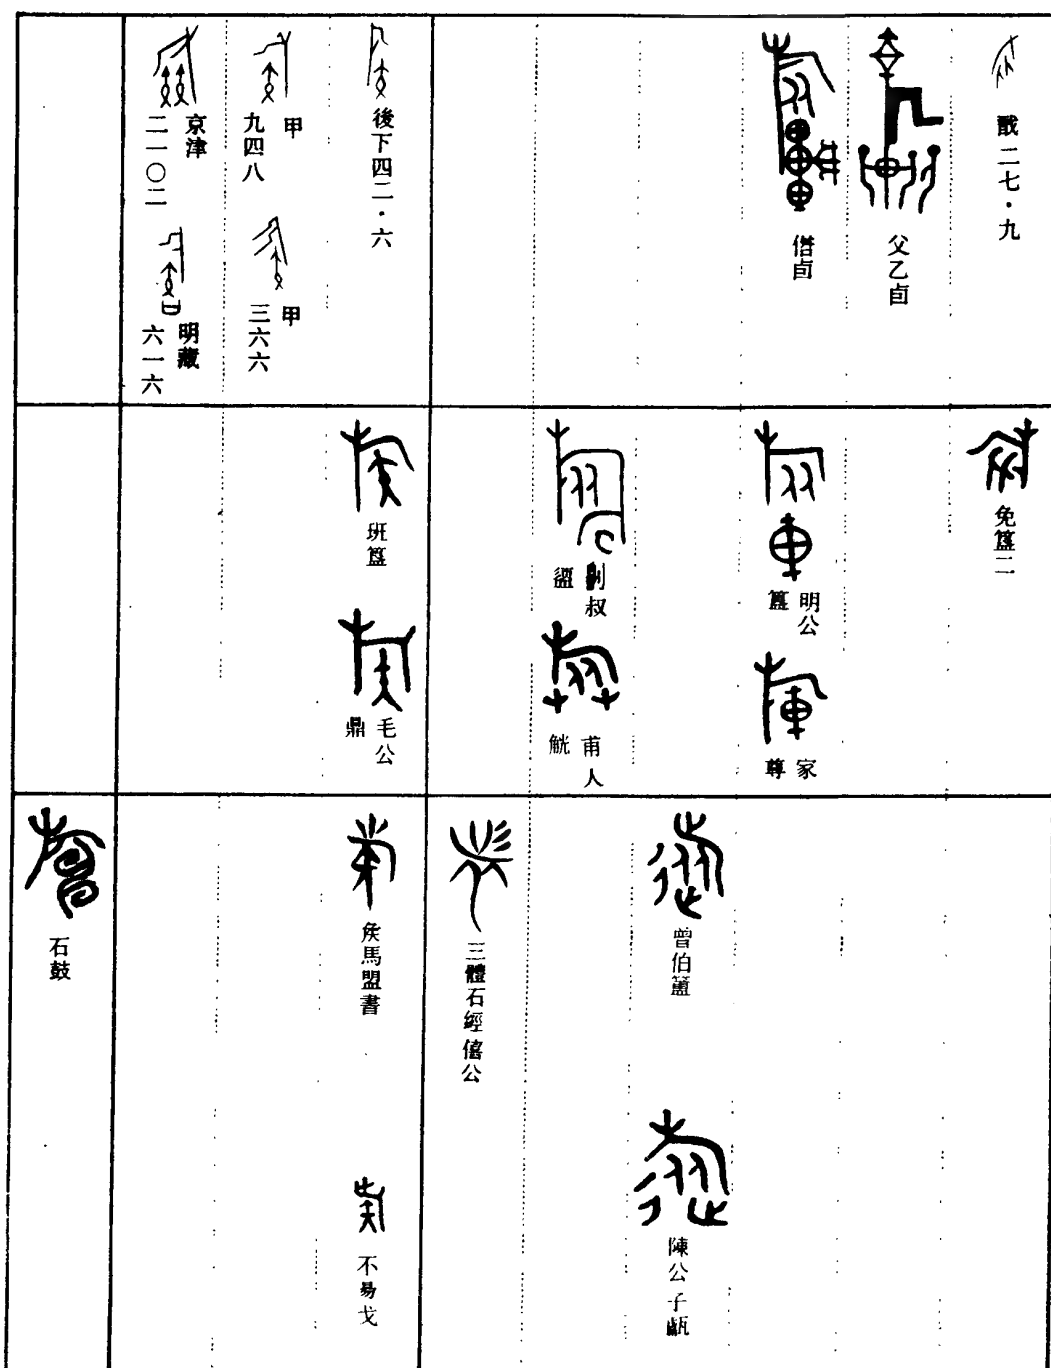 戩二七·九
父乙卣
僭卣
後下四二·六
甲
九四八
甲
三六六
京津
二一〇二
明藏
六一六
免簋二
明公
簋
家
尊
叔
甫人
觥
班簋
毛公
鼎
曾伯簠
陳公子甗
三體石經僖公
矦馬盟書
不昜戈
石鼓